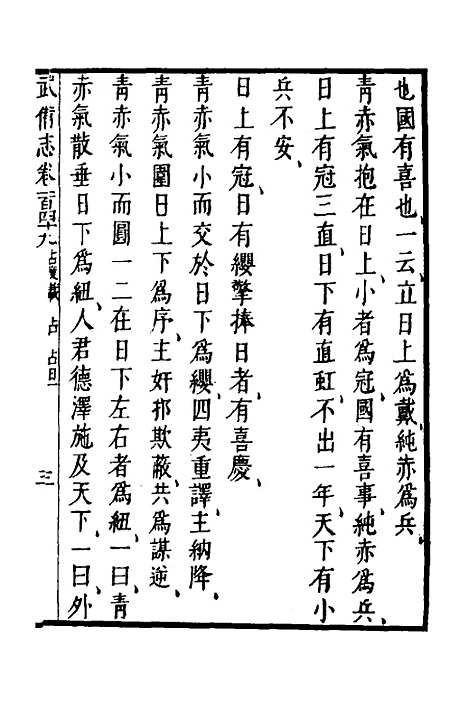 也國有喜也、一云、立日上爲戴、純赤爲兵
青赤氣抱在日上、小者爲冠、國有喜事、純赤爲兵、
日上有冠三直、日下有直虹、不出一年、天下有小
兵不安、
日上有冠、日有纓擎捧日者、有喜慶、
青赤氣小而交於日下爲纓、四夷重譯、主納降、
青赤氣圍日上下爲序、主奸邪欺蔽、共爲謀逆、
青赤氣小而圓一二在日下左右者爲紐、一曰、青
赤氣散垂日下爲紐、人君德澤施及天下、一曰、外
武備志卷一百四十九 占度載 占 占日一 三